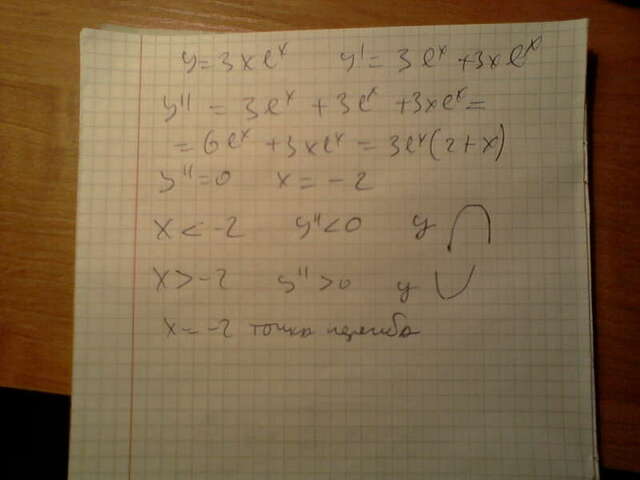 y = 3xe^x y' = 3e^x + 3xe^x
y'' = 3e^x + 3e^x + 3xe^x =
= 6e^x + 3xe^x = 3e^x(2+x)
y'' = 0 x = -2
x < -2 y'' < 0 y ∩
x > -2 y'' > 0 y ∪
x = -2 точка перегиба